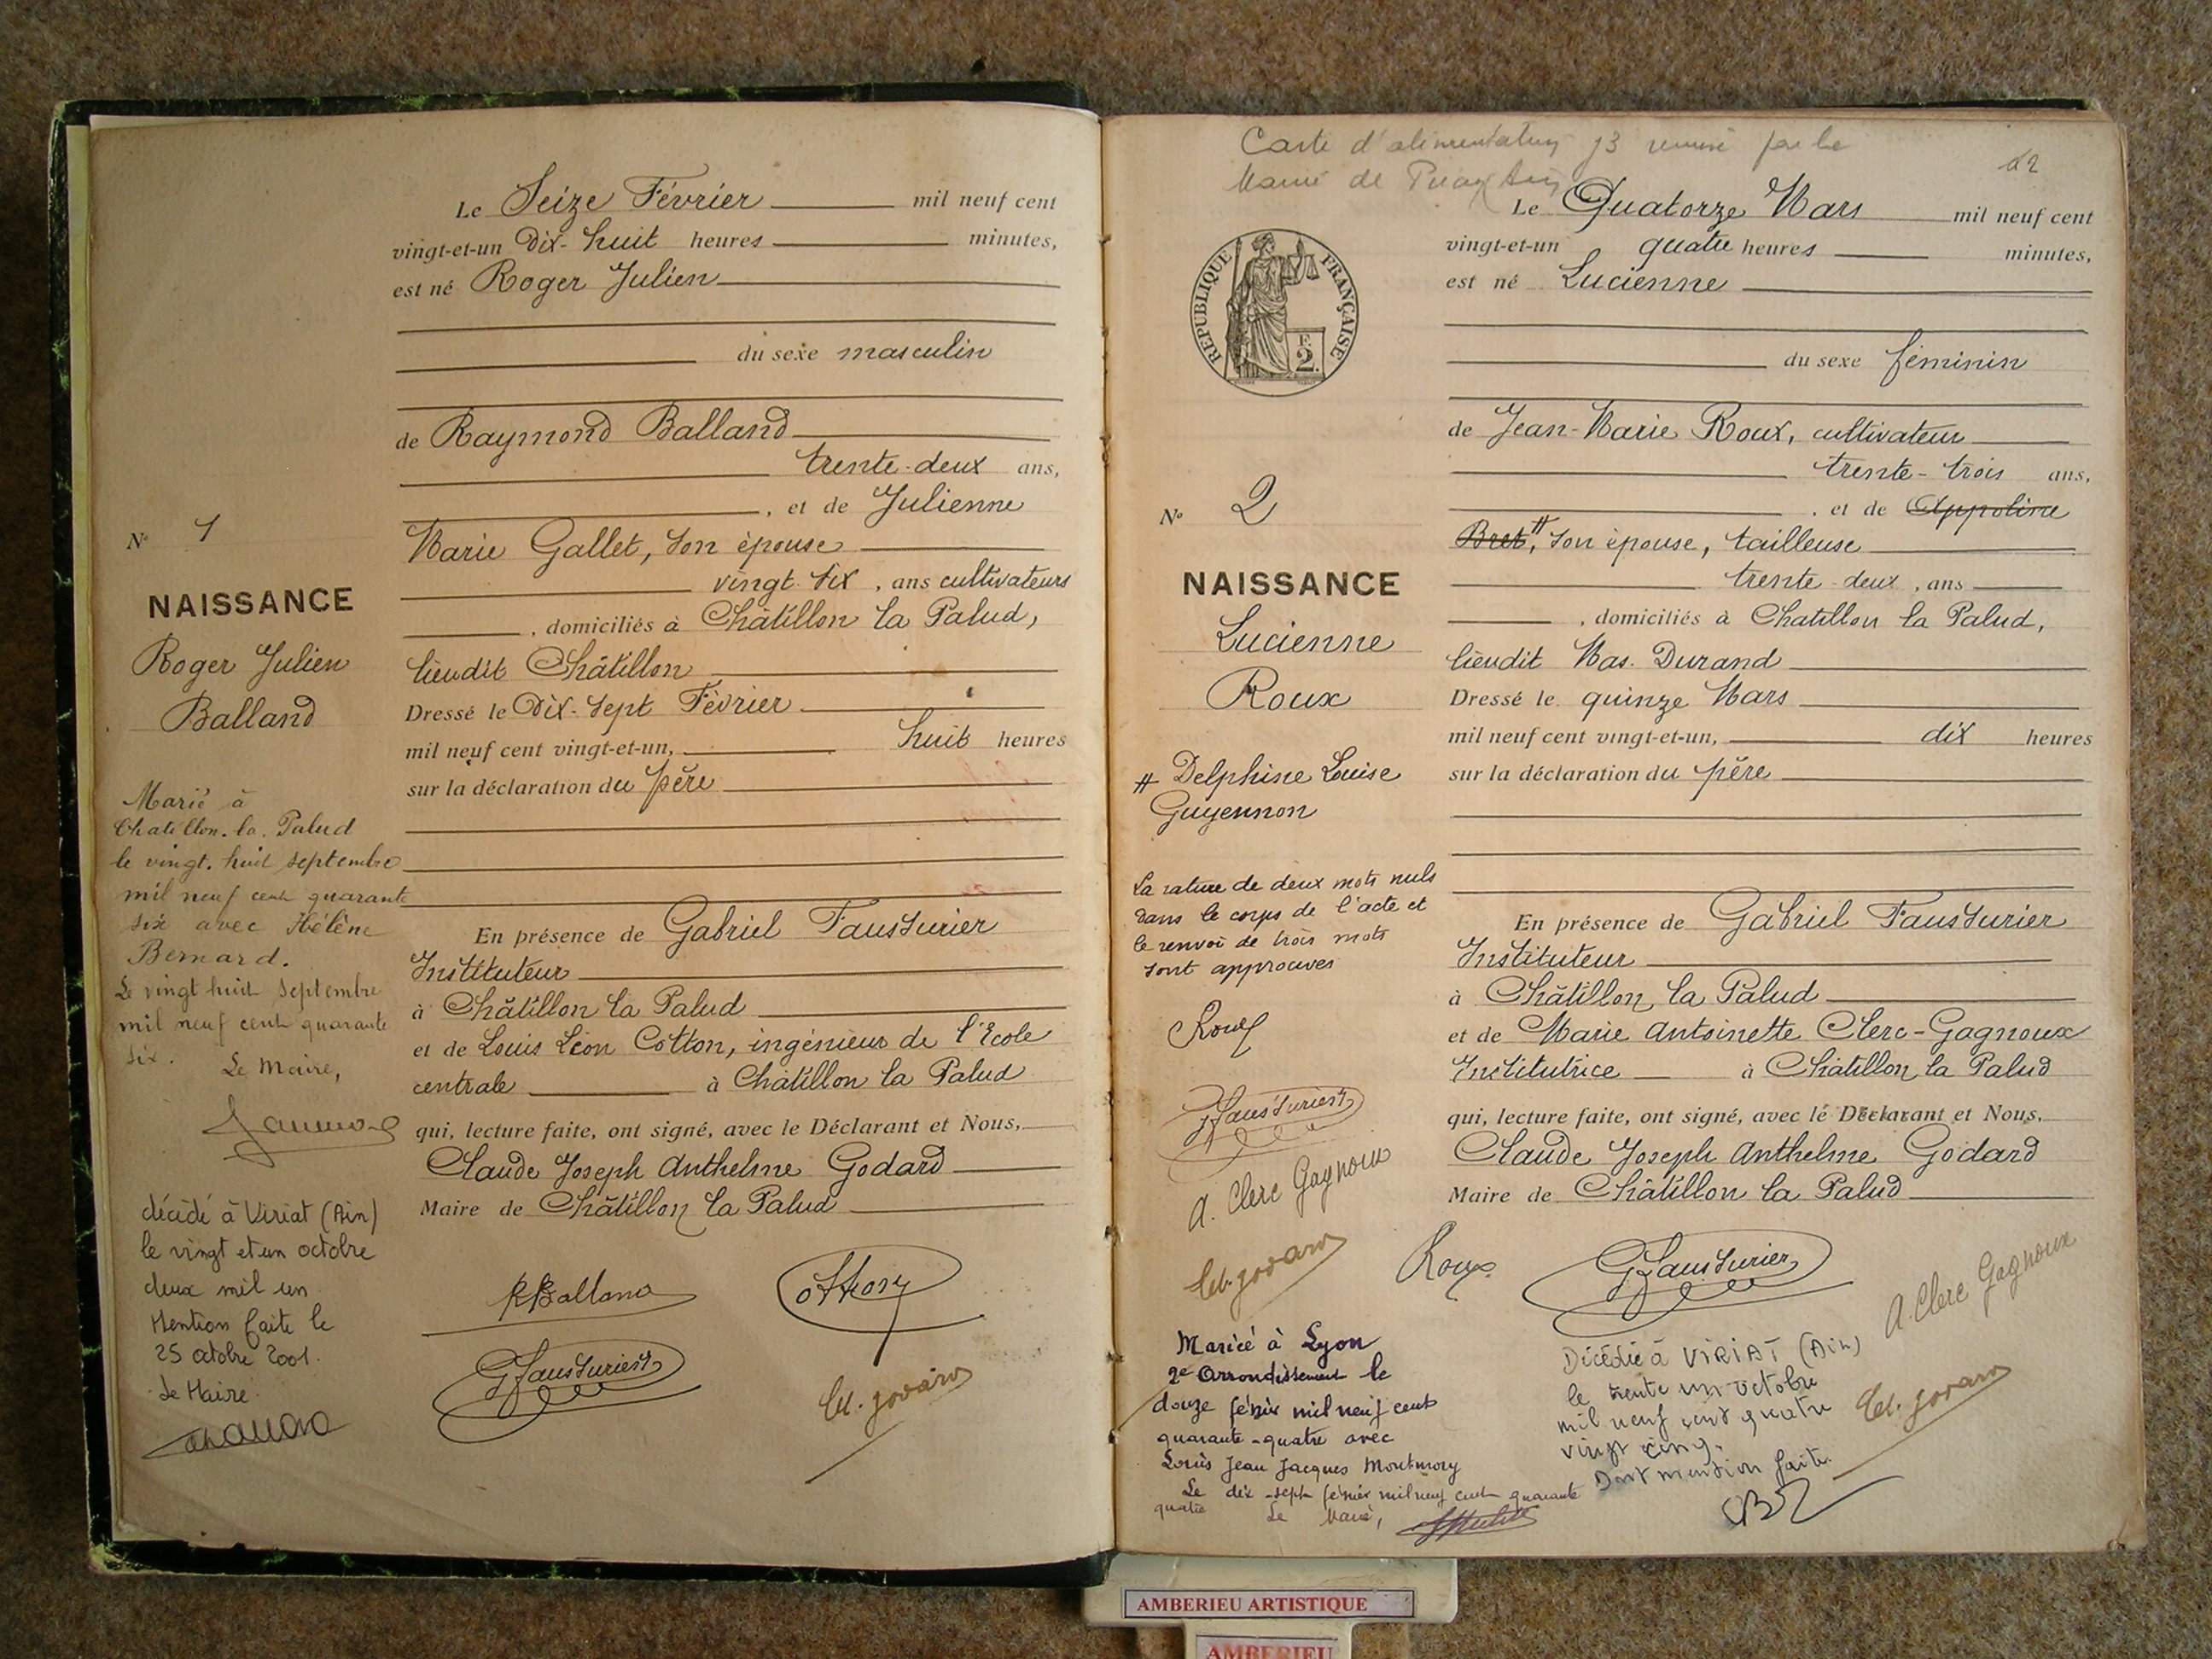 Le Seize Février mil neuf cent
vingt-et-un Dix-huit heures minutes,
est né Roger Julien
du sexe masculin
de Raymond Balland
trente-deux ans,
, et de Julienne
Marie Gallet, son épouse
vingt-six, ans cultivateurs
, domiciliés à Châtillon la Palud,
lieudit Châtillon
Dressé le Dix-sept Février
mil neuf cent vingt-et-un, huit heures
sur la déclaration du père
En présence de Gabriel Faussurier
Instituteur
à Châtillon la Palud
et de Louis Léon Cotton, ingénieur de l'Ecole
centrale à Châtillon la Palud
qui, lecture faite, ont signé, avec le Déclarant et Nous,
Claude Joseph Anthelme Godard
Maire de Châtillon la Palud
RBalland
Cottony
GFaussurier
Cl. godard
N° 1
NAISSANCE
Roger Julien
Balland
Marié à
Chatillon-la-Palud
le vingt-huit septembre
mil neuf cent quarante
six avec Hélène
Bernard.
Le vingt huit septembre
mil neuf cent quarante
six.
Le Maire,
décédé à Viriat (Ain)
le vingt et un octobre
deux mil un
Mention faite le
25 octobre 2001.
Le Maire
Carte d'alimentation J3 remise par le
Mairie de
Le Quatorze Mars mil neuf cent
vingt-et-un quatre heures minutes,
est né Lucienne
du sexe féminin
de Jean-Marie Roux, cultivateur
trente-trois ans,
, et de Appoline
Bret,# son épouse, tailleuse
trente-deux, ans
, domiciliés à Chatillon la Palud,
lieudit Mas-Durand
Dressé le quinze Mars
mil neuf cent vingt-et-un, dix heures
sur la déclaration du père
En présence de Gabriel Faussurier
Instituteur
à Châtillon la Palud
et de Marie Antoinette Clerc-Gagnoux
Institutrice à Châtillon la Palud
qui, lecture faite, ont signé, avec le Déclarant et Nous,
Claude Joseph Anthelme Godard
Maire de Châtillon la Palud
Roux
GFaussurier
A. Clerc Gagnoux
Cl. godard
REPUBLIQUE FRANÇAISE
F.
2.
N° 2
NAISSANCE
Lucienne
Roux
# Delphine Louise
Guyennon
La rature de deux mots nuls
dans le corps de l'acte et
le renvoi de trois mots
sont approuvés
Roux
GFaussurier
A. Clerc Gagnoux
Cl. godard
Mariée à Lyon
2e Arrondissement le
douze février mil neuf cent
quarante-quatre avec
Louis Jean Jacques Montmory
Le dix-sept février mil neuf cent quarante
quatre Le Maire,
Décédée à VIRIAT (Ain)
le trente un octobre
mil neuf cent quatre
vingt cinq.
Dont mention faite.
AMBERIEU ARTISTIQUE
AMBERIEU